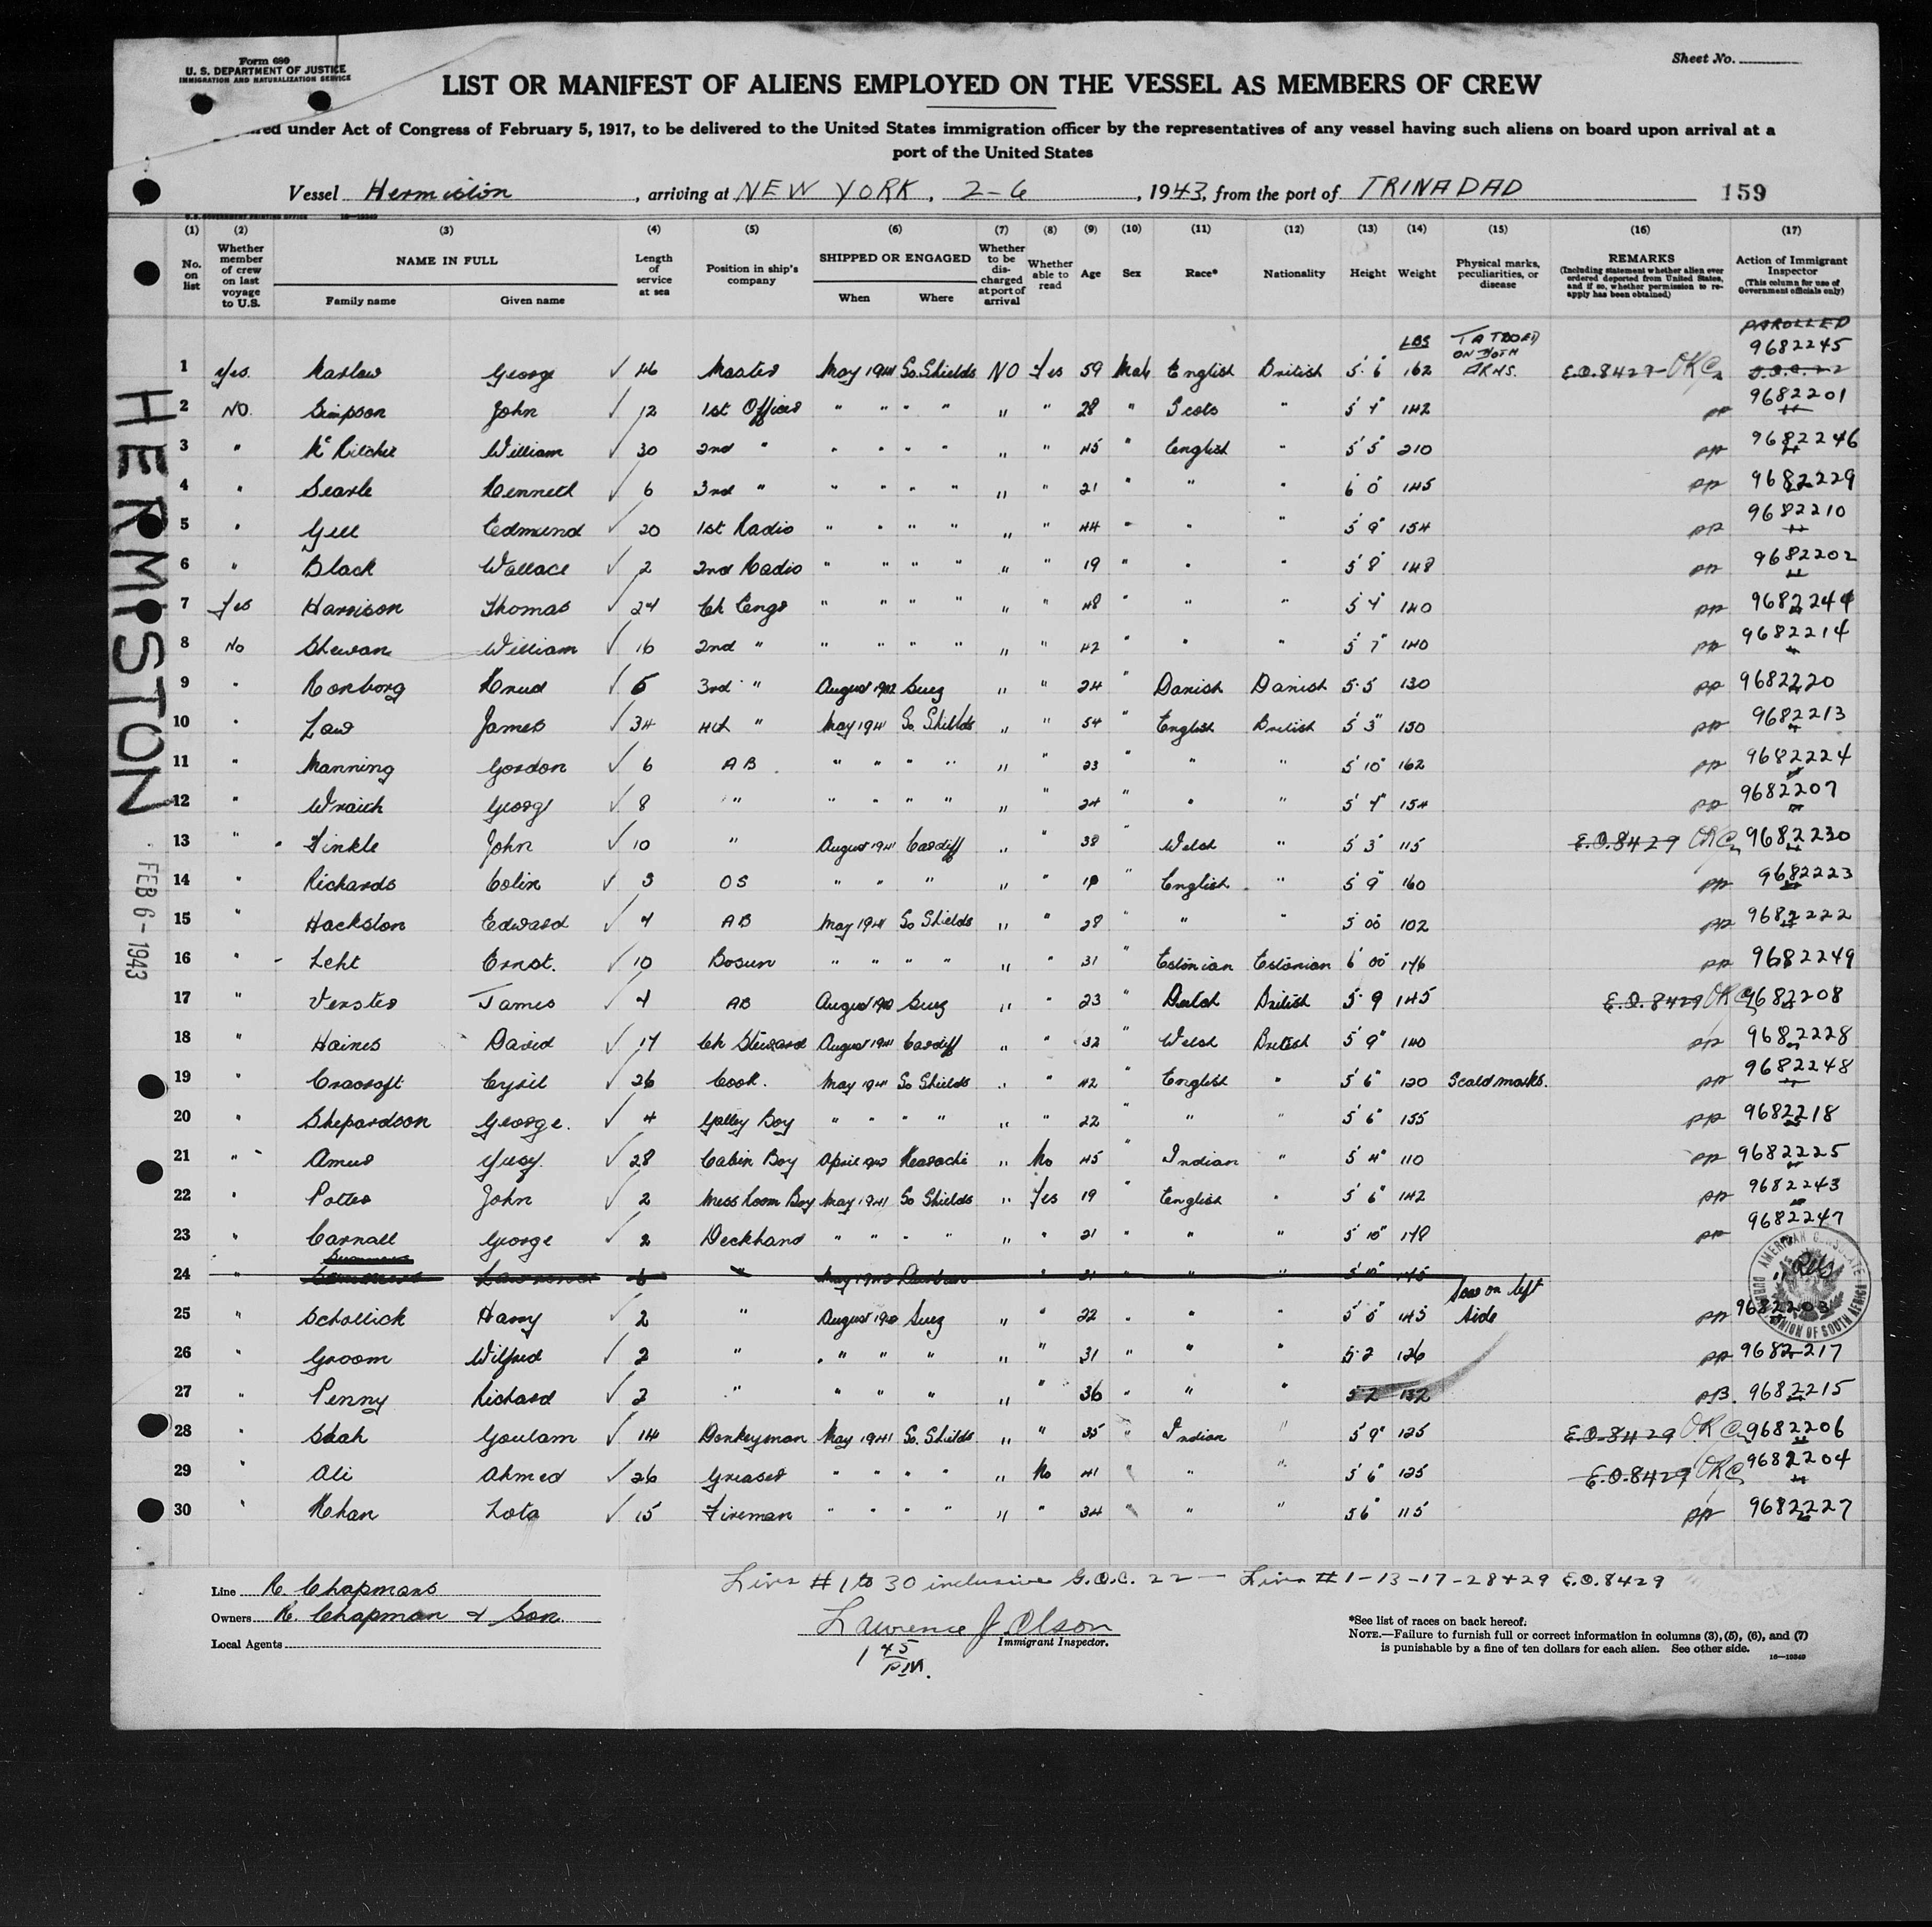 Form 680
U. S. DEPARTMENT OF JUSTICE
IMMIGRATION AND NATURALIZATION SERVICE
Sheet No.
LIST OR MANIFEST OF ALIENS EMPLOYED ON THE VESSEL AS MEMBERS OF CREW
red under Act of Congress of February 5, 1917, to be delivered to the United States immigration officer by the representatives of any vessel having such aliens on board upon arrival at a
port of the United States
Vessel Hermiston, arriving at NEW YORK, 2-6, 1943, from the port of TRINADAD 159
U.S. GOVERNMENT PRINTING OFFICE 16—19349
(1) (2) (3) (4) (5) (6) (7) (8) (9) (10) (11) (12) (13) (14) (15) (16) (17)
No. on list
Whether member of crew on last voyage to U.S.
NAME IN FULL
Family name Given name
Length of service at sea
Position in ship's company
SHIPPED OR ENGAGED
When Where
Whether to be discharged at port of arrival
Whether able to read
Age
Sex
Race*
Nationality
Height
Weight
Physical marks, peculiarities, or disease
REMARKS
(Including statement whether alien ever ordered deported from United States, and if so, whether permission to re-apply has been obtained)
Action of Immigrant Inspector
(This column for use of Government officials only)
LBS TATOOED ON BOTH ARMS. PAROLLED
1 Yes. Marlow George ✓ 46 Master May 1941 So. Shields NO Yes 59 Male English British 5' 6" 162 E.O. 8429 OK 9682245 G.O.C. 22
2 NO. Simpson John ✓ 12 1st Officer " " " " " " 28 " Scots " 5' 7" 142 pp 9682201
3 " McRitchie William ✓ 30 2nd " " " " " " " 45 " English " 5' 5" 210 pp 9682246
4 " Searle Kenneth ✓ 6 3rd " " " " " " " 21 " " " 6' 0" 145 pp 9682229
5 " Gill Edmund ✓ 20 1st Radio " " " " " " 44 " " " 5' 9" 154 pp 9682210
6 " Black Wallace ✓ 2 2nd Radio " " " " " " 19 " " " 5' 8" 148 pp 9682202
7 Yes Harrison Thomas ✓ 24 Ch Engr " " " " " " 48 " " " 5' 7" 140 pp 9682244
8 No Shewan William ✓ 16 2nd " " " " " " " 42 " " " 5' 7" 140 pp 9682214
9 " Knud ✓ 5 3rd " August 1942 Suez " " 24 " Danish Danish 5' 5 130 pp 9682220
10 " Law James ✓ 34 4th " May 1941 So. Shields " " 54 " English British 5' 3" 150 pp 9682213
11 " Manning Gordon ✓ 6 AB " " " " " " 23 " " " 5' 10" 162 pp 9682224
12 " Wraith George ✓ 8 " " " " " " " 24 " " " 5' 7" 154 pp 9682207
13 " Finkle John ✓ 10 " August 1941 Cardiff " " 38 " Welsh " 5' 3" 115 E.O. 8429 OK 9682230
14 " Richards Colin ✓ 3 OS " " " " " 19 " English " 5' 9" 160 pp 9682223
15 " Hackston Edward ✓ 4 AB May 1941 So Shields " " 28 " " " 5' 00 102 pp 9682222
16 " Leht Ernst. ✓ 10 Bosun " " " " " " 31 " Estonian Estonian 6' 00" 176 pp 9682249
17 " Verster James ✓ 4 AB August 1942 Suez " " 23 " Dutch British 5' 9 145 E.O. 8429 OK 9682208
18 " Haines David ✓ 17 Ch Steward August 1941 Cardiff " " 32 " Welsh British 5' 9" 140 pp 9682228
19 " Cracroft Cyril ✓ 26 Cook. May 1941 So Shields " " 42 " English " 5' 6" 120 Scald marks. pp 9682248
20 " Shepardson George. ✓ 4 Galley Boy " " " " " " 22 " " " 5' 6" 155 pp 9682218
21 " ✓ 28 Cabin Boy April 1942 Karachi " No 45 " Indian " 5' 4" 110 pp 9682225
22 " Potter John ✓ 2 Mess Room Boy May 1941 So Shields " Yes 19 " English " 5' 6" 142 pp 9682243
23 " Carnall George ✓ 2 Deckhand " " " " " " 21 " " " 5' 10" 178 pp 9682247
24 " Lawrence 6 " May 1942 Durban " 21 " " " 5' 10" 145
25 " Schollick Harry ✓ 2 " August 1942 Suez " " 22 " " " 5' 5" 145 Scar on left side pp 9682203
26 " Groom Wilfred ✓ 2 " " " " " " 31 " " " 5' 2 126 pp 9682217
27 " Penny Richard ✓ 2 " " " " " " 36 " " " 5 2 132 pp. 9682215
28 " Shah Goulam ✓ 14 Donkeyman May 1941 So. Shields " " 35 " Indian " 5' 9" 125 E.O. 8429 OK 9682206
29 " Ali Ahmed ✓ 26 Greaser " " " " " No 41 " " " 5' 6" 125 E.O. 8429 OK 9682204
30 " Khan Lota ✓ 15 Fireman " " " " " " 34 " " " 5 6" 115 pp 9682227
HERMISTON
FEB 6 - 1943
AMERICAN CONSULATE DURBAN, UNION OF SOUTH AFRICA
Line R. Chapmans
Owners R. Chapman & Son.
Local Agents
Lines # 1 to 30 inclusive G.O.C. 22 — Lines # 1-13-17-28+29 E.O. 8429
Lawrence J. Olson
Immigrant Inspector.
1 45 P.M.
*See list of races on back hereof.
NOTE.—Failure to furnish full or correct information in columns (3), (5), (6), and (7)
is punishable by a fine of ten dollars for each alien. See other side.
16—19349